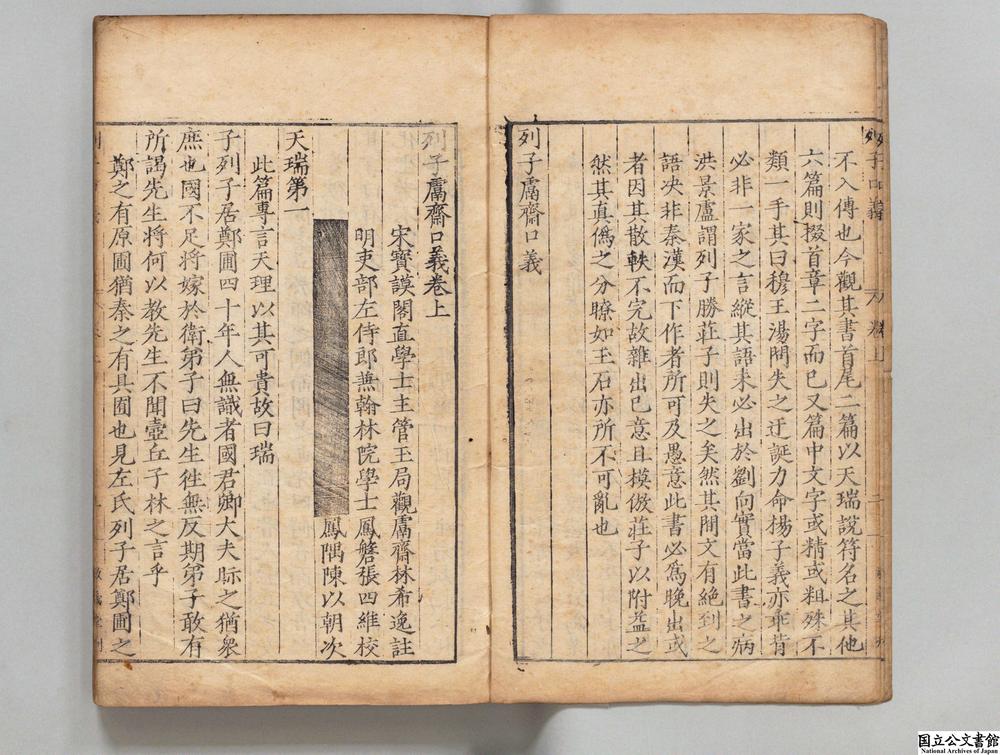 不入傳也今觀其書首尾二篇以天瑞說符名之其他
六篇則掇首章二字而已又篇中文字或精或粗殊不
類一手其曰穆王湯問失之迂誕力命揚子義亦乖背
必非一家之言縱其語未必出於劉向實當此書之病
洪景盧謂列子勝莊子則失之矣然其間文有絕到之
語決非秦漢而下作者所可及愚意此書必爲晚出或
者因其散軼不完故雜出己意且模倣莊子以附益之
然其真僞之分瞭如玉石亦所不可亂也
列子鬳齋口義
列子鬳齋口義卷上
宋寶謨閣直學士主管玉局觀鬳齋林希逸註
明吏部左侍郎兼翰林院學士鳳磐張四維校
鳳隅陳以朝次
天瑞第一
此篇專言天理以其可貴故曰瑞
子列子居鄭圃四十年人無識者國君卿大夫眎之猶衆
庶也國不足將嫁於衛弟子曰先生徃無反期弟子敢有
所謁先生將何以教先生不聞壺丘子林之言乎
鄭之有原圃猶秦之有具囿也見左氏列子居鄭圃之
国立公文書館
National Archives of Japan